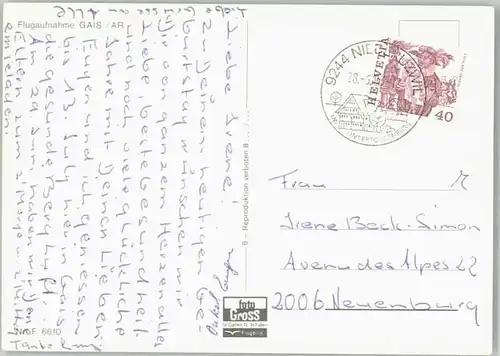 Flugaufnahme GAIS / AR
Liebe Irene!
zu Deinem heutigen Ge-
burtstag wünschen wir
Dir von ganzem Herzen alles
Liebe, beste Gesundheit
und noch viele glückliche
Jahre mit Deinen Lieben.
Eugen und ich geniessen
bis 13. July hier in Gais
die gesunde Bergluft.
Am 29. Juni haben wir Deine
Eltern zum z'Morge
eingeladen.
Tante
NoF 6610
B – Reproduktion verboten B
foto
GROSS
9244 NIEDERUZWIL
HELVETIA
40
Frau
Irene Beck-Simon
Avenue des Alpes 22
2006 Neuenburg